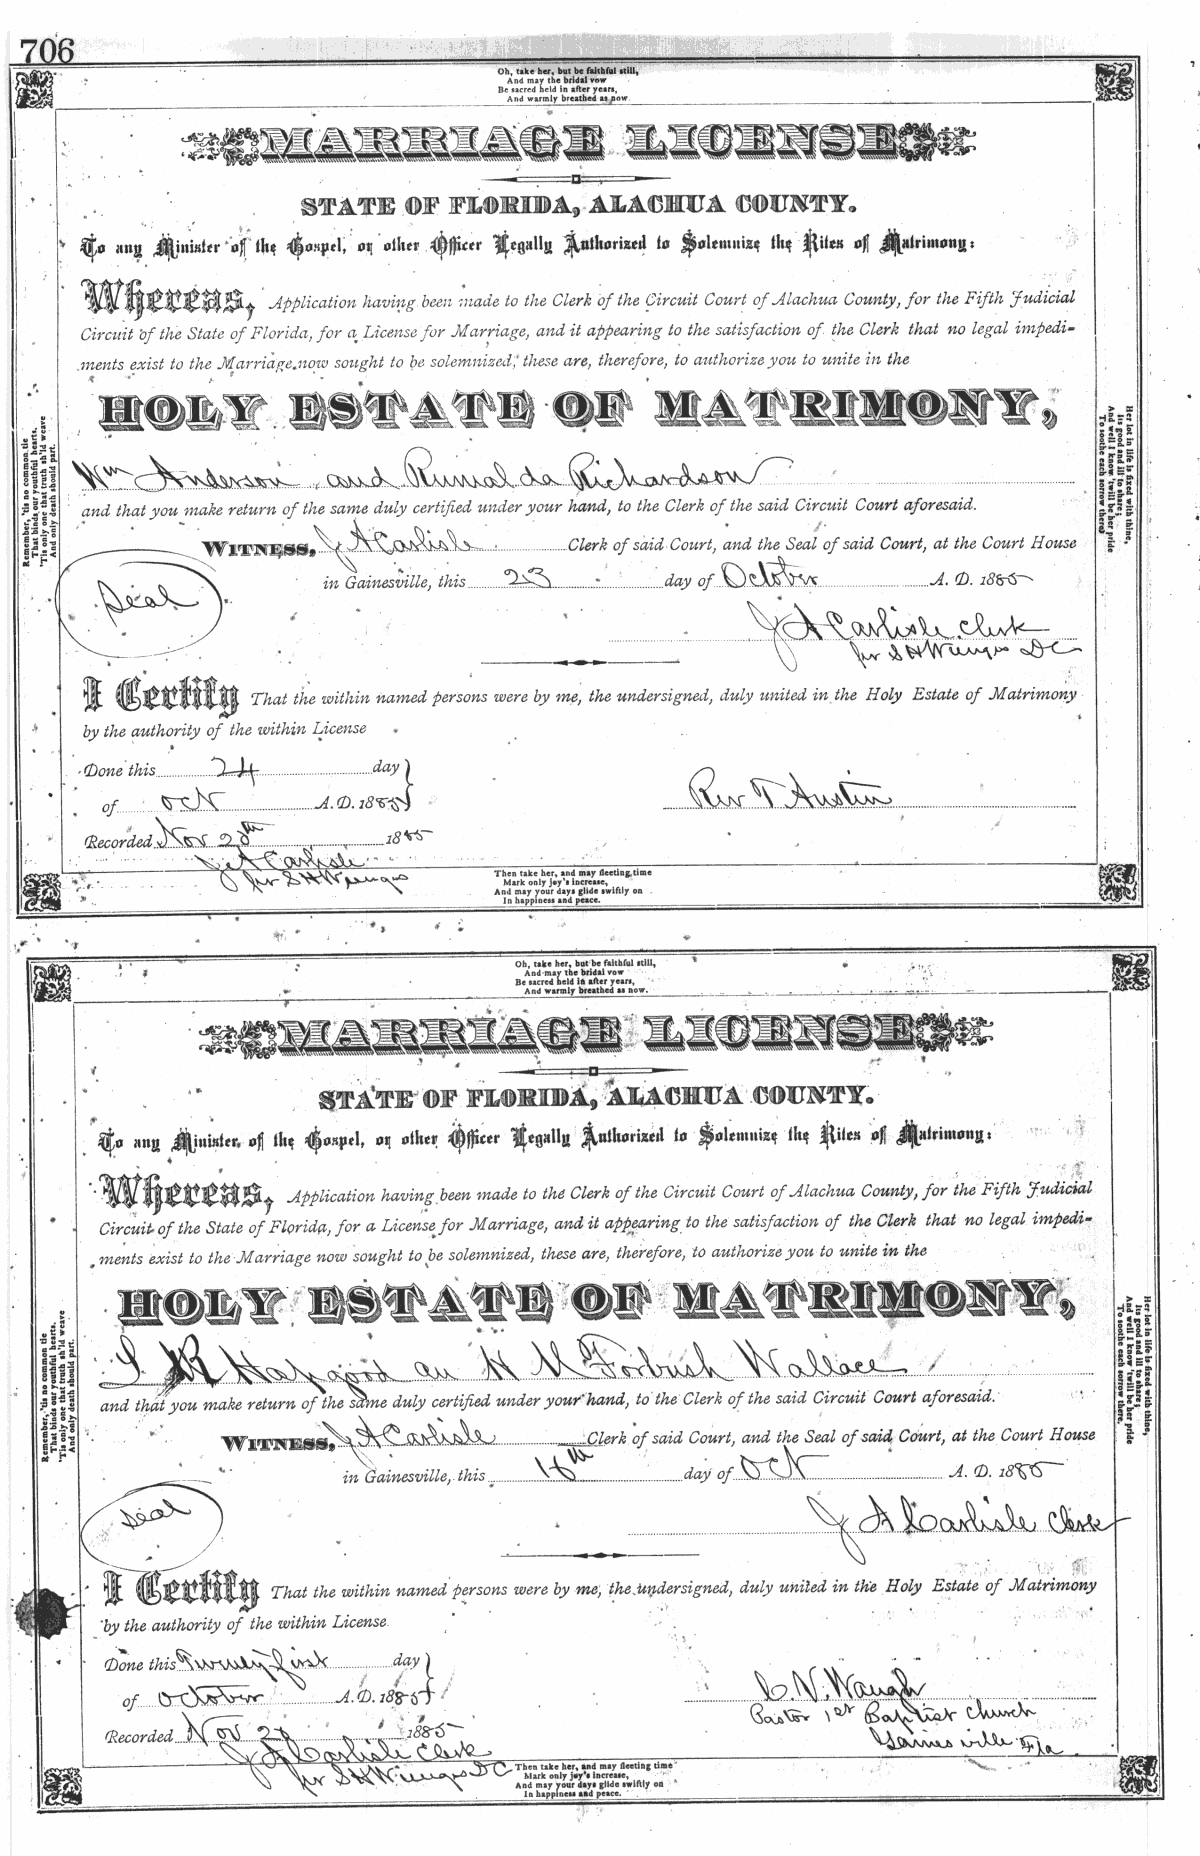 706
Oh, take her, but be faithful still,
And may the bridal vow
Be sacred held in after years,
And warmly breathed as now.
MARRIAGE LICENSE
STATE OF FLORIDA, ALACHUA COUNTY.
To any Minister of the Gospel, or other Officer Legally Authorized to Solemnize the Rites of Matrimony:
Whereas, Application having been made to the Clerk of the Circuit Court of Alachua County, for the Fifth Judicial
Circuit of the State of Florida, for a License for Marriage, and it appearing to the satisfaction of the Clerk that no legal impedi-
ments exist to the Marriage now sought to be solemnized, these are, therefore, to authorize you to unite in the
HOLY ESTATE OF MATRIMONY,
Wm Anderson and Rumalda Richardson
and that you make return of the same duly certified under your hand, to the Clerk of the said Circuit Court aforesaid.
WITNESS, J A Carlisle Clerk of said Court, and the Seal of said Court, at the Court House
in Gainesville, this 23 day of October A. D. 1885
Seal
J A Carlisle Clerk
per S H Wienges DC
I Certify That the within named persons were by me, the undersigned, duly united in the Holy Estate of Matrimony
by the authority of the within License
Done this 24 day
of Oct A. D. 1885
Rev T Austin
Recorded Nov 1885
J A Carlisle
per S H Wienges
Remember, 'tis no common tie
That binds our youthful hearts,
'Tis only one that truth sh'ld weave
And only death should part.
Her lot in life is fixed with thine,
Its good and ill to share;
And well I know 'twill be her pride
To soothe each sorrow there.
Then take her, and may fleeting time
Mark only joy's increase,
And may your days glide swiftly on
In happiness and peace.
Oh, take her, but be faithful still,
And may the bridal vow
Be sacred held in after years,
And warmly breathed as now.
MARRIAGE LICENSE
STATE OF FLORIDA, ALACHUA COUNTY.
To any Minister of the Gospel, or other Officer Legally Authorized to Solemnize the Rites of Matrimony:
Whereas, Application having been made to the Clerk of the Circuit Court of Alachua County, for the Fifth Judicial
Circuit of the State of Florida, for a License for Marriage, and it appearing to the satisfaction of the Clerk that no legal impedi-
ments exist to the Marriage now sought to be solemnized, these are, therefore, to authorize you to unite in the
HOLY ESTATE OF MATRIMONY,
S R Hapgood an H M Forbush Wallace
and that you make return of the same duly certified under your hand, to the Clerk of the said Circuit Court aforesaid.
WITNESS, J A Carlisle Clerk of said Court, and the Seal of said Court, at the Court House
in Gainesville, this day of Oct A. D. 1885
Seal
J A Carlisle Clerk
I Certify That the within named persons were by me, the undersigned, duly united in the Holy Estate of Matrimony
by the authority of the within License.
Done this Twenty first day
of October A. D. 1885
C. V. Waugh
Pastor 1st Baptist Church
Gainesville Fla
Recorded Nov 1885
J A Carlisle Clerk
per S H Wienges DC
Remember, 'tis no common tie
That binds our youthful hearts.
'Tis only one that truth sh'ld weave
And only death should part.
Her lot in life is fixed with thine,
Its good and ill to share;
And well I know 'twill be her pride
To soothe each sorrow there.
Then take her, and may fleeting time
Mark only joy's increase,
And may your days glide swiftly on
In happiness and peace.